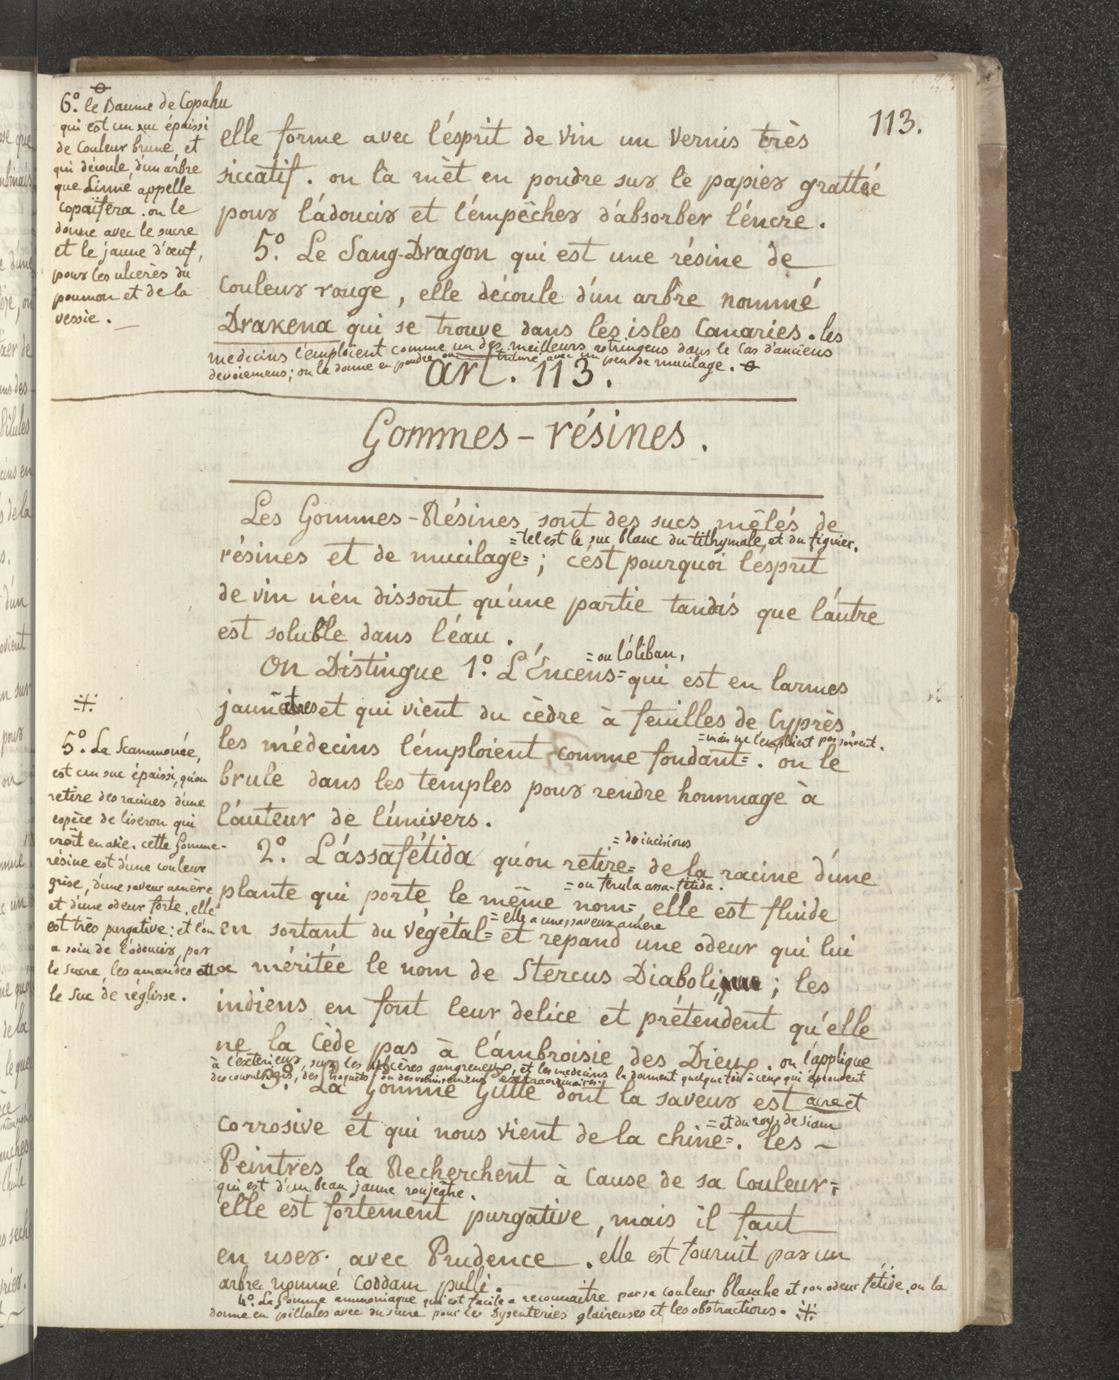 113.
⦵
6.° le Baume de Copahu
qui est un suc épaissi
de Couleur brune et
qui découle d'un arbre
que Linné appelle
copaïfera. on le
donne avec le sucre
et le jaune d'œuf,
pour les ulcères du
poumon et de la
vessie.
elle forme avec l'ésprit de vin un vernis très
siccatif. on la mèt en poudre sur le papier grattée
pour l'adoucir et l'empêcher d'absorber l'encre.
5.° Le Sang-Dragon qui est une résine de
Couleur rouge, elle découle d'un arbre nommé
Drakena qui se trouve dans les isles Canaries. les
medecins l'emploient comme un des meilleurs astringens dans le cas d'anciens
devoiemens; on la donne en poudre ou triture avec un peu de mucilage. ⦵
art. 113.
Gommes-résines.
Les Gommes-Résines sont des sucs mêlés de
= tel est le suc blanc du tithymale, et du figuier.
résines et de mucilage= ; c'ést pourquoi l'esprit
de vin n'én dissout qu'une partie tandis que l'autre
est soluble dans l'éau.
= ou l'oliban,
On Distingue 1.° L'Éncens= qui est en larmes
jaunâtres et qui vient du cèdre à feuilles de Cyprès
= mais ne l'emploient pas souvent.
les médecins l'émploient comme fondant=. on le
brule dans les temples pour rendre hommage à
l'auteur de l'univers.
= de incisions
2.° L'assafétida qu'on retire= de la racine d'une
= ou ferula assa-fetida.
plante qui porte le même nom= elle est fluide
= elle a une saveur amere
en sortant du végétal= et repand une odeur qui lui
a méritée le nom de Stercus Diaboli ; les
indiens en font leur delice et prétendent qu'elle
ne la Cède pas à l'ambroisie des Dieux. on l'applique
à l'exterieur, sur les ulcères gangreneux, et les medecins la donnent quelquefois à ceux qui éprouvent
des convulsions, des hoquets ou des vomissemens extraordinaires.
3.° La Gomme Gutte dont la saveur est acre et
= et du roy. de siam
corrosive et qui nous vient de la chine=. les
Peintres la Recherchent à Cause de sa Couleur=
qui est d'un beau jaune roujeâtre.
elle est fortement purgative, mais il faut
en user avec Prudence. elle est fournit par un
arbre nommé Coddam pulli.
4.° La Gomme ammoniaque qui est facile a reconnaitre par sa couleur blanche et son odeur fétide. on la
donne en pillules avec du sucre pour les dyssenteries glaireuses et les obstructions. ⁜
⁜
5.° La Scammonée,
est un suc épaissi, qu'on
retire des racines d'une
espèce de liseron qui
croît en asie. cette Gomme-
résine est d'une couleur
grise, d'une saveur amère
et d'une odeur forte. elle
est très purgative; et l'on
a soin de l'adoucir, par
le sucre, les amandes et
le suc de réglisse.